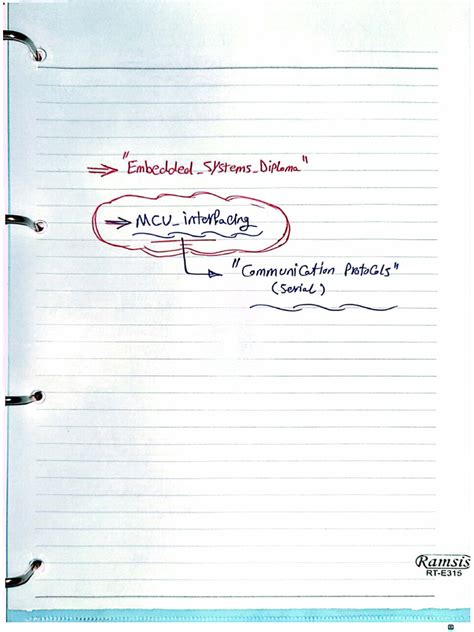 ⇒ "Embedded_Systems_Diploma"
⇒ MCU_interfacing
"Communication Protocols"
(Serial)
Ramsis
RT-E315